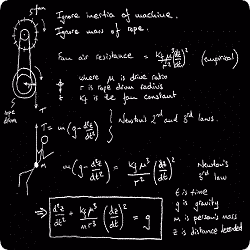 fan
Ignore inertia of machine.
Ignore mass of rope.
Fan air resistance = kfμ³/r² (dz/dt)² (empirical)
where μ is drive ratio
r is rope drum radius
kf is the fan constant
rope
drum
T
T = m(g - d²z/dt²) } Newton's 2nd and 3rd laws.
m(g - d²z/dt²) = kfμ³/r² (dz/dt)² Newton's
3rd law
⇒ d²z/dt² + kfμ³/mr² (dz/dt)² = g
t is time
g is gravity
m is person's mass
z is distance descended